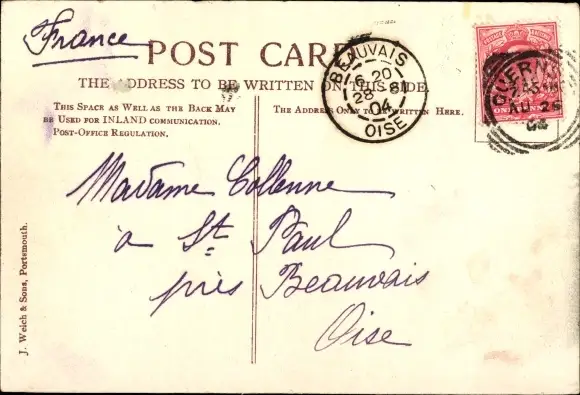 France
POST CARD
THE ADDRESS TO BE WRITTEN ON THIS SIDE.
THIS SPACE AS WELL AS THE BACK MAY
BE USED FOR INLAND COMMUNICATION.
POST-OFFICE REGULATION.
THE ADDRESS ONLY TO BE WRITTEN HERE.
BEAUVAIS
6 20
28 8
04
OISE
GUERNSEY
AU 26
04
Madame Collenne
à St Paul
près Beauvais
Oise
J. Welch & Sons, Portsmouth.